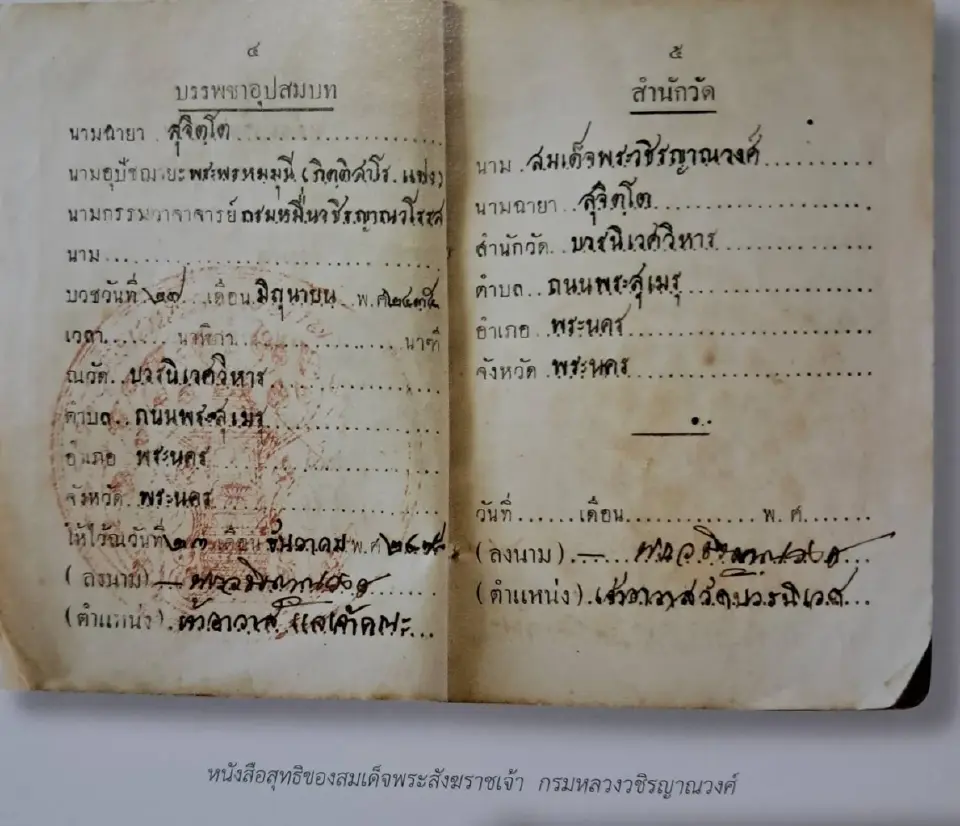 ๔
บรรพชาอุปสมบท
นามฉายา . สุจิตฺโต
นามอุปัชฌายะ พระพรหมมุนี (กิตติสาโร. แฟง)
นามกรรมวาจาจารย์ กรมหมื่นวชิรญาณวโรรส
นาม
บวชวันที่ ๒๗ เดือน มิถุนายน พ.ศ. ๒๔๓๕
เวลา นาฬิกา นาฑี
ณวัด บวรนิเวศวิหาร
ตำบล ถนนพระสุเมรุ
อำเภอ พระนคร
จังหวัด พระนคร
ให้ไว้ณวันที่ ๒๓ เดือน ธันวาคม พ.ศ.
(ลงนาม)
(ตำแหน่ง) เจ้าอาวาส แลเจ้าคณะ
๕
สำนักวัด
นาม สมเด็จพระวชิรญาณวงศ์
นามฉายา สุจิตฺโต
สำนักวัด บวรนิเวศวิหาร
ตำบล ถนนพระสุเมรุ
อำเภอ พระนคร
จังหวัด พระนคร
วันที่ เดือน พ.ศ.
(ลงนาม)
(ตำแหน่ง) เจ้าอาวาสวัดบวรนิเวศ
หนังสือสุทธิของสมเด็จพระสังฆราชเจ้า กรมหลวงวชิรญาณวงศ์